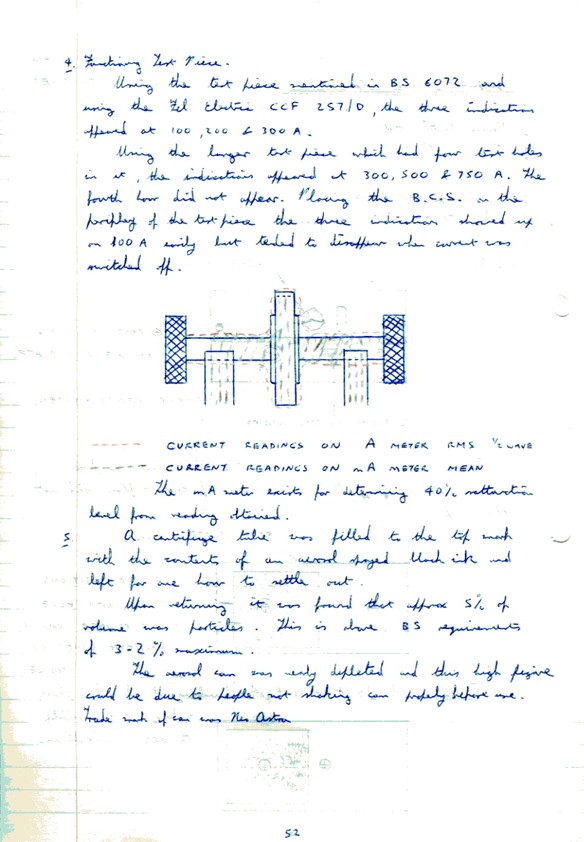 4. Functioning Test Piece.
Using the test piece mentioned in BS 6072 and
using the Fel Electric CCF 257/D, the three indications
appeared at 100, 200 & 300 A.
Using the larger test piece which had four test holes
in it, the indications appeared at 300, 500 & 750 A. The
fourth how did not appear. Placing the B.C.S. on the
periphery of the test piece the three indications showed up
on 100 A easily but tended to disappear when current was
switched off.
CURRENT READINGS ON A METER RMS ½ WAVE
CURRENT READINGS ON mA METER MEAN
The mA meter exists for determining 40%
level from reading obtained.
5. A centrifuge tube was filled to the top mark
with the contents of an aerosol sprayed black ink and
left for one hour to settle out.
Upon returning it was found that approx 5% of
volume was particles. This is above BS requirements
of 3-2% maximum.
The aerosol can was nearly depleted and this high figure
could be due to people not shaking can properly before use.
Trade mark of can was
52